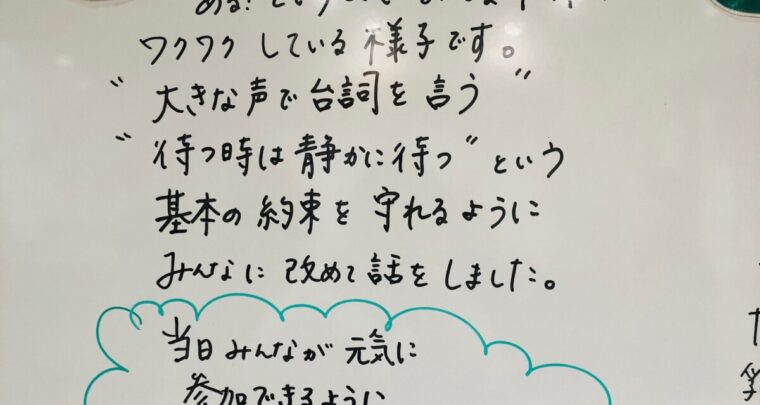 ワクワクしている様子です。
"大きな声で台詞を言う"
"待つ時は静かに待つ"という
基本の約束を守れるように
みんなに改めて話をしました。
当日みんなが元気に
参加できるように